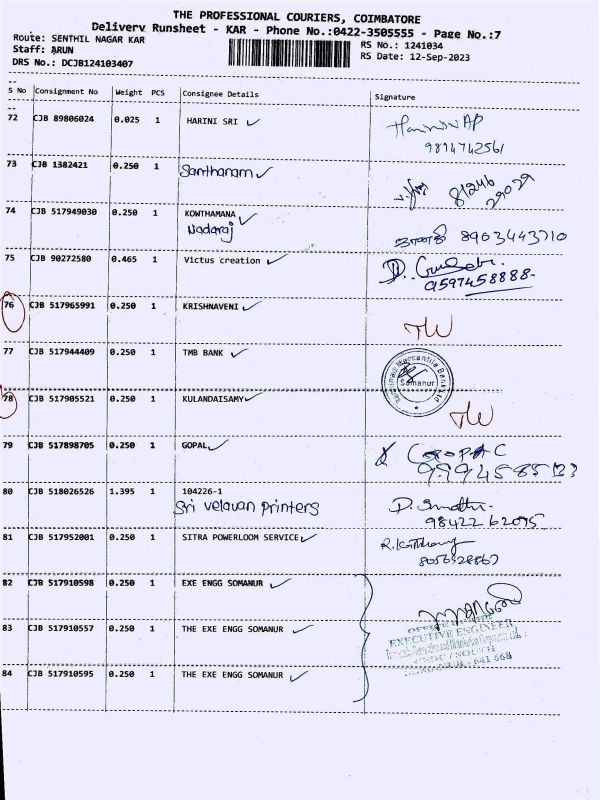 THE PROFESSIONAL COURIERS, COIMBATORE
Delivery Runsheet - KAR - Phone No.:0422-3505555 - Page No.:7
Route: SENTHIL NAGAR KAR
RS No.: 1241034
Staff: ARUN
RS Date: 12-Sep-2023
DRS No.: DCJB124103407
S No Consignment No Weight PCS Consignee Details Signature
72 CJB 89806024 0.025 1 HARINI SRI
9894742561
73 CJB 1382421 0.250 1 Santhanam
81246
29029
74 CJB 517949030 0.250 1 KOWTHAMANA
Nadaraj
8903443710
75 CJB 90272580 0.465 1 Victus creation
9597458888-
76 CJB 517965991 0.250 1 KRISHNAVENI
TW
77 CJB 517944409 0.250 1 TMB BANK
Tamilnad Mercantile Bank Ltd
Somanur
78 CJB 517905521 0.250 1 KULANDAISAMY
TW
79 CJB 517898705 0.250 1 GOPAL
GOPAL
80 CJB 518026526 1.395 1 104226-1
Sri velavan printers
98422 62095
81 CJB 517952001 0.250 1 SITRA POWERLOOM SERVICE
8056528867
82 CJB 517910598 0.250 1 EXE ENGG SOMANUR
EXECUTIVE ENGINEER
83 CJB 517910557 0.250 1 THE EXE ENGG SOMANUR
641 668
84 CJB 517910595 0.250 1 THE EXE ENGG SOMANUR